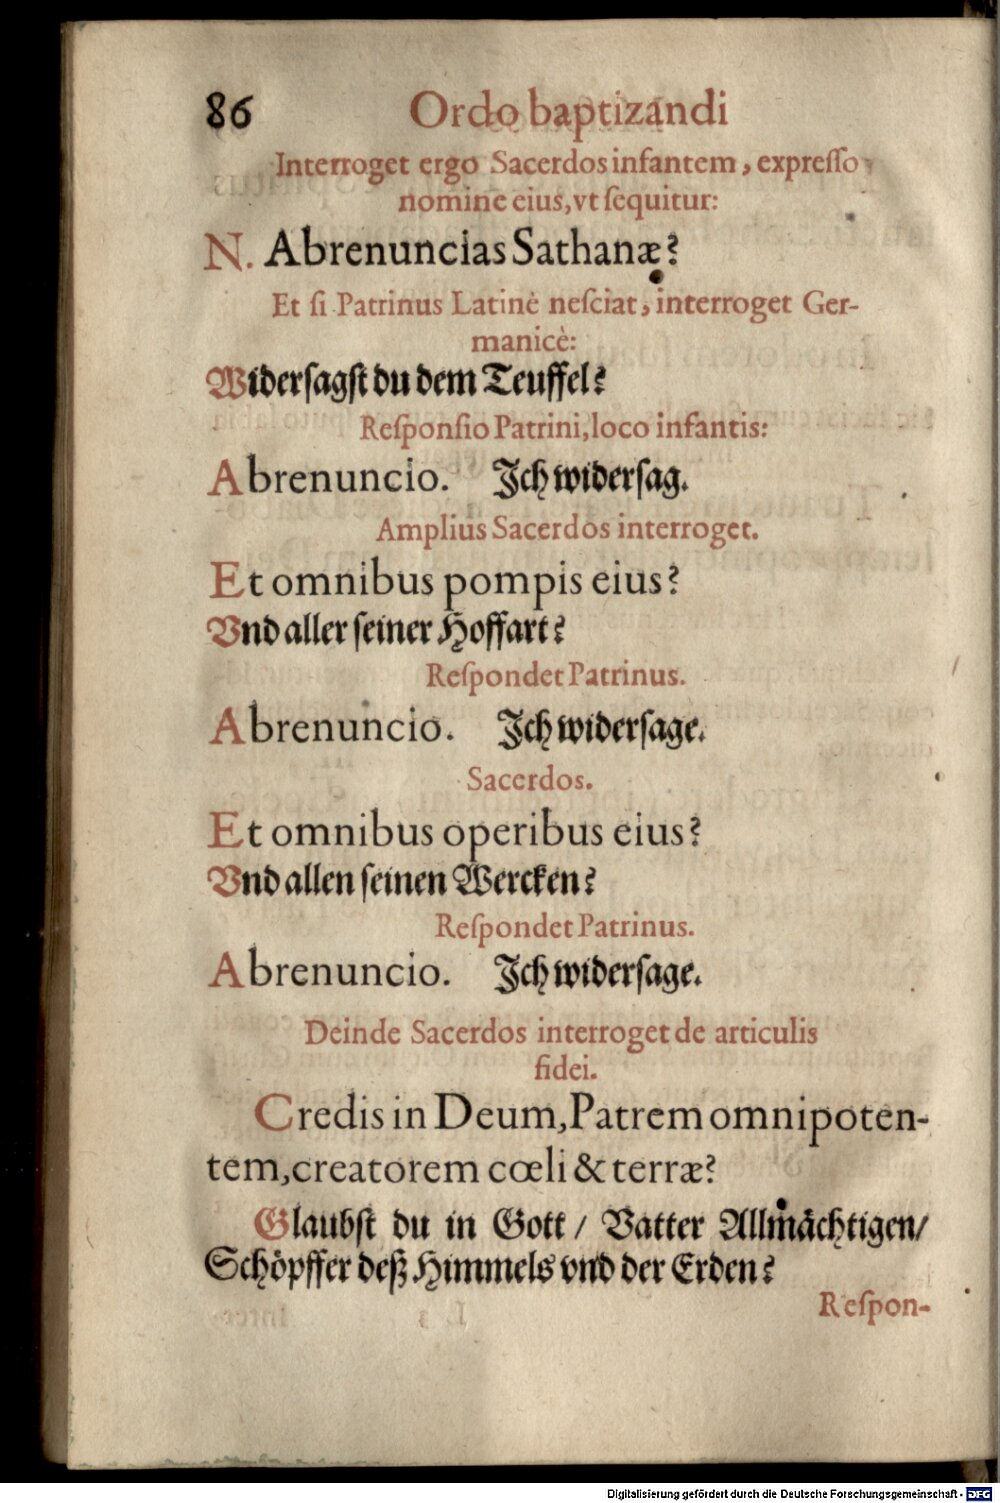 86 Ordo baptizandi
Interroget ergo Sacerdos infantem, expreſſo
nomine eius, vt ſequitur:
N. Abrenuncias Sathanæ?
Et ſi Patrinus Latinè neſciat, interroget Ger-
manicè:
Widerſagſt du dem Teuffel?
Reſponſio Patrini, loco infantis:
Abrenuncio. Ich widerſag.
Amplius Sacerdos interroget.
Et omnibus pompis eius?
Vnd aller ſeiner Hoffart?
Reſpondet Patrinus.
Abrenuncio. Ich widerſage.
Sacerdos.
Et omnibus operibus eius?
Vnd allen ſeinen Wercken?
Reſpondet Patrinus.
Abrenuncio. Ich widerſage.
Deinde Sacerdos interroget de articulis
fidei.
Credis in Deum, Patrem omnipoten-
tem, creatorem cœli & terræ?
Glaubſt du in Gott / Vatter Allmächtigen/
Schöpffer deß Himmels vnd der Erden?
Reſpon-
Digitalisierung gefördert durch die Deutsche Forschungsgemeinschaft - DFG